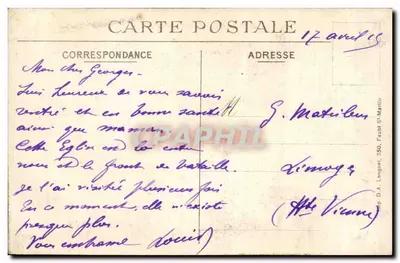 CARTE POSTALE
17 avril 15
CORRESPONDANCE
ADRESSE
Mon cher Georges -
Suis heureux de vous savoir
rentré et en bonne santé
ainsi que maman.
Cette Eglise est
nous et le front de bataille.
je l'ai visitée plusieurs fois
En ce moment, elle n'existe
presque plus.
Vous embrasse Louis
G.
Limoges
(Hte Vienne)
CPAPHIL